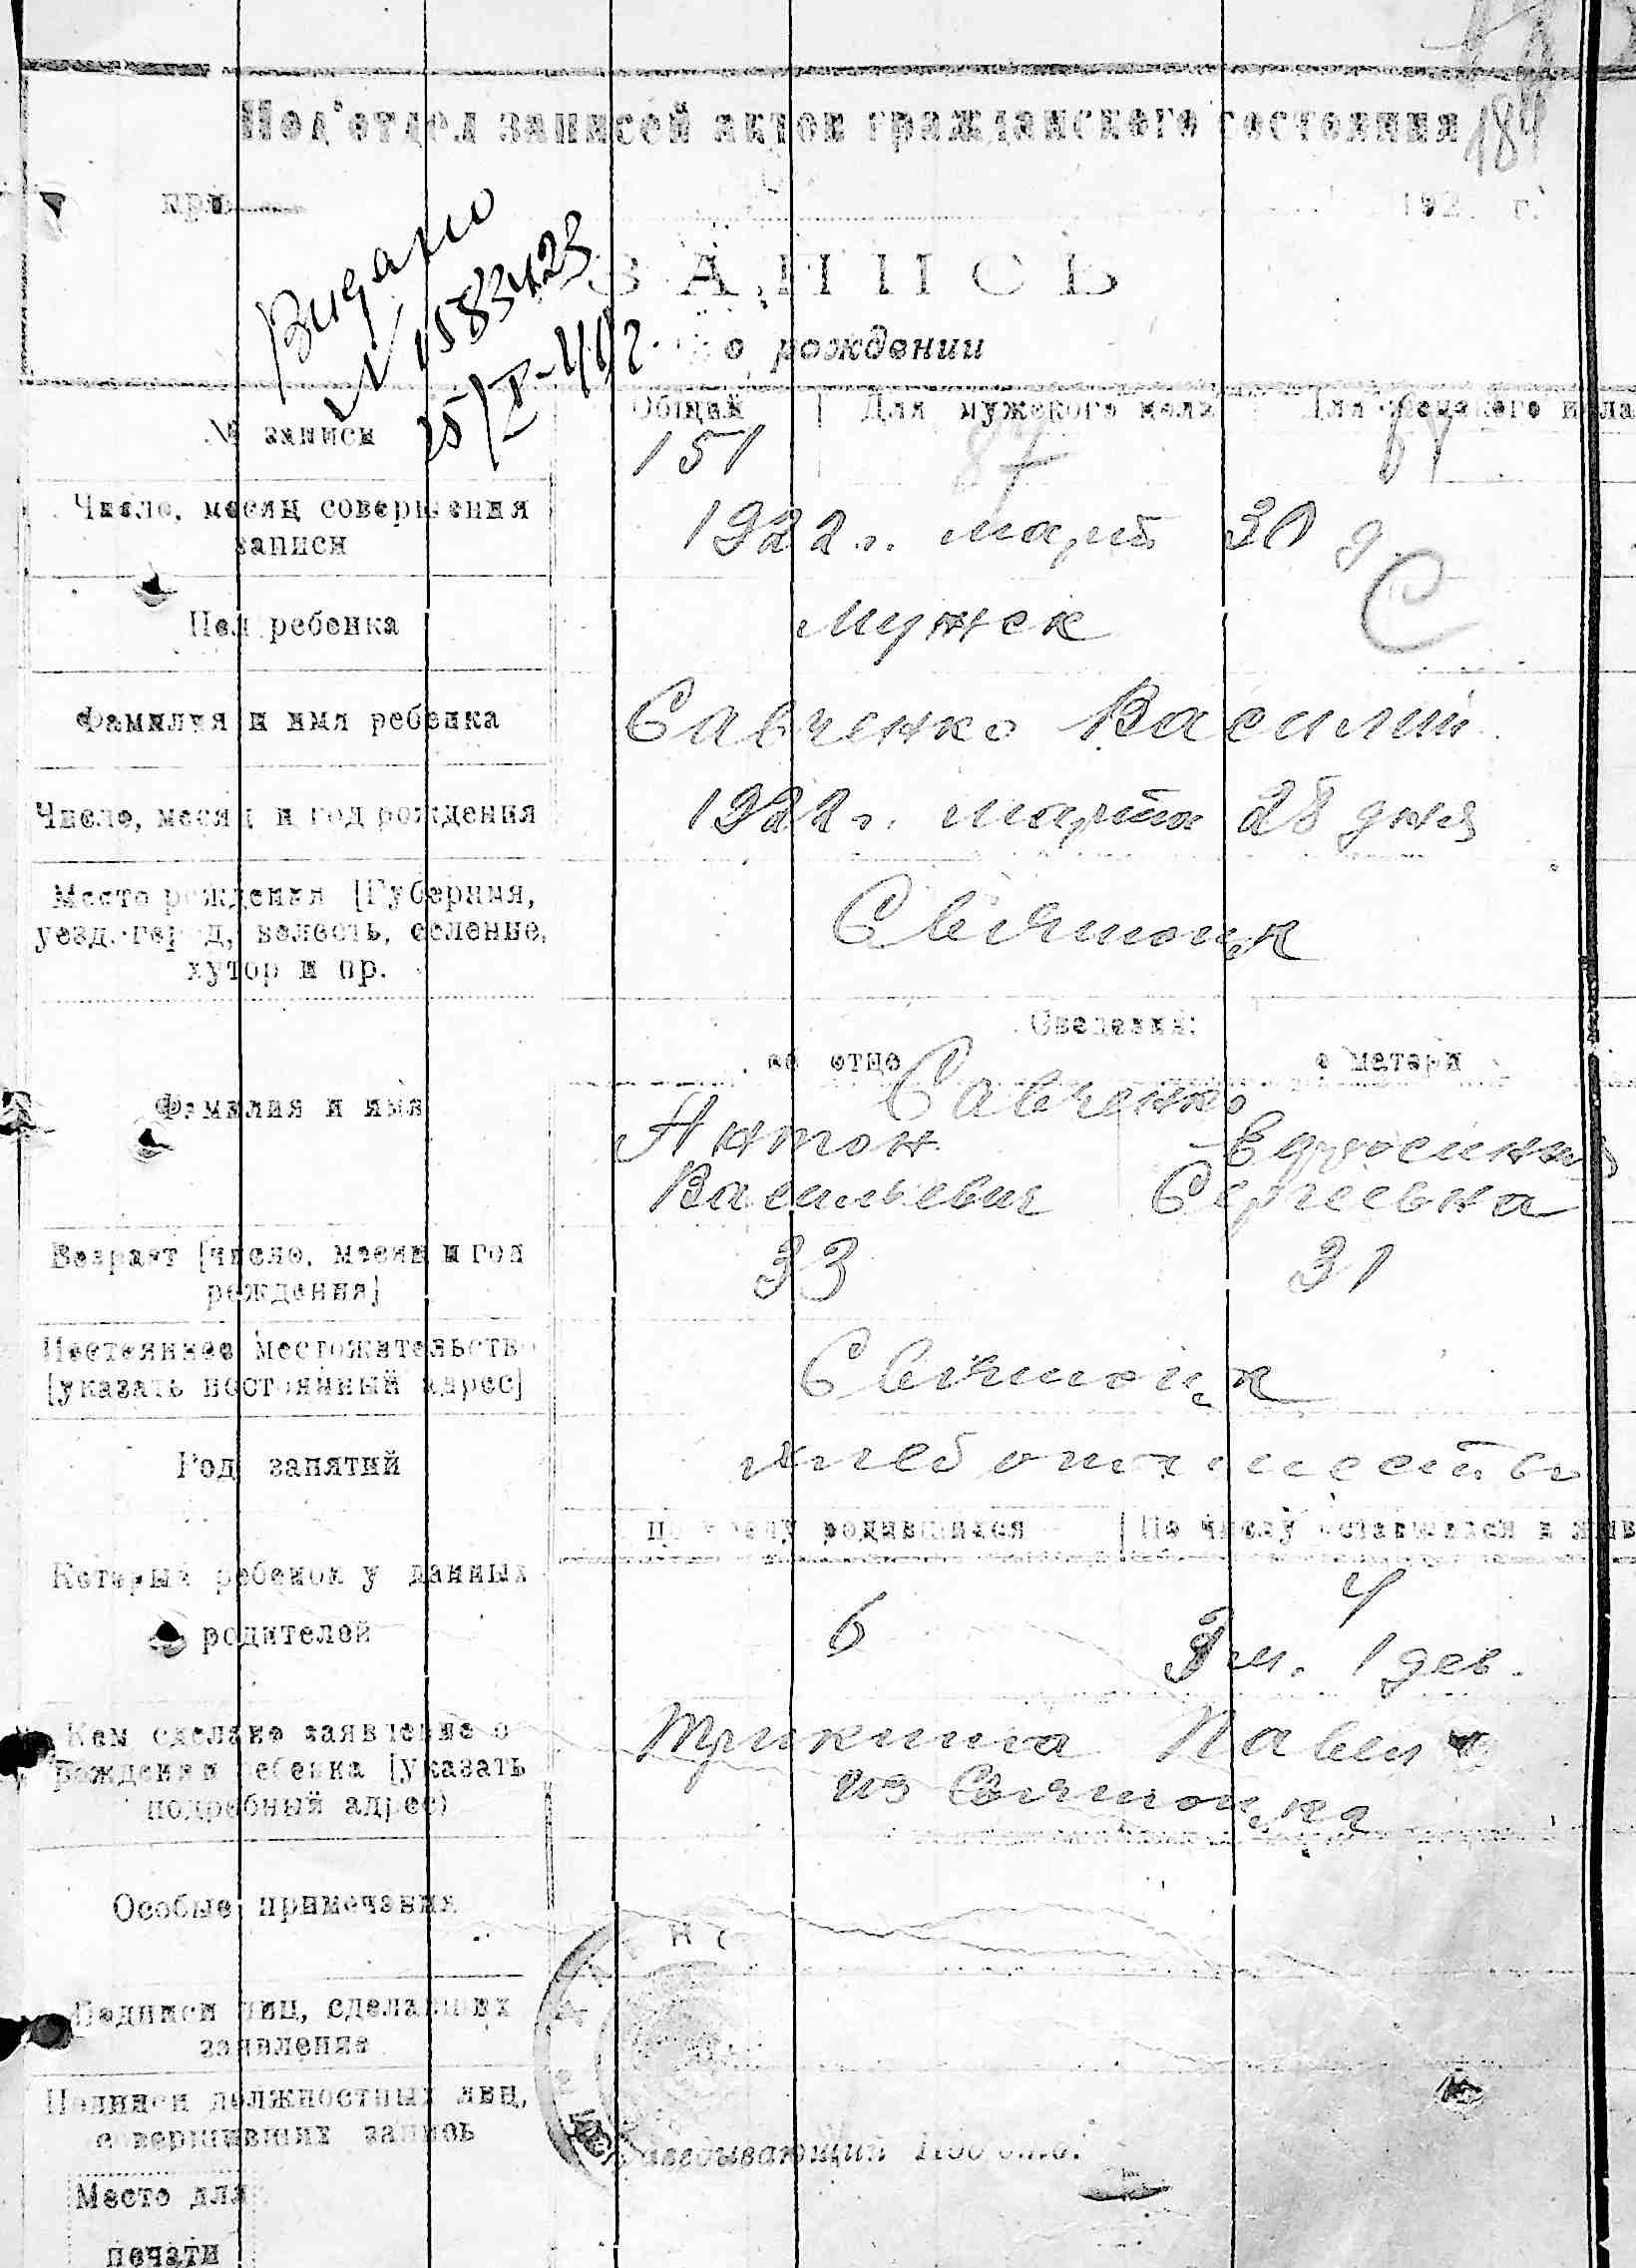 184
Под'отдел записей актов гражданского состояния
при
192 г.
Видано
N 1583423
ЗАПИСЬ
о рождении
Общий Для мужского пола Для женского пола
№ записи 151 87
Число, месяц совершения 1922 г. март 30 д.
записи
С
Пол ребенка мужск
Фамилия и имя ребенка Савченко Василий
Число, месяц и год рождения 1922 г. марта 28 дня
Место рождения [Губерния,
уезд, город, волость, селение,
хутор и пр.
Сведения:
об отце о матери
Савченко
Фамилия и имя Антон Ефросиния
Васильевич Сергеевна
Возраст [число, месяц и год 33 31
рождения]
Постоянное местожительство
[указать постоянный адрес]
Род занятий хлебопашеств
По числу родившихся По числу оставшихся в жив
Который ребенок у данных 4
родителей 6 3 м. 1 дев.
Кем сделано заявление о Павел
рождении ребенка [указать из
подробный адрес)
Особые примечания
Подписи лиц, сделавших
заявление
Подписи должностных лиц,
совершивших запись
Заведывающий
Место для
печати